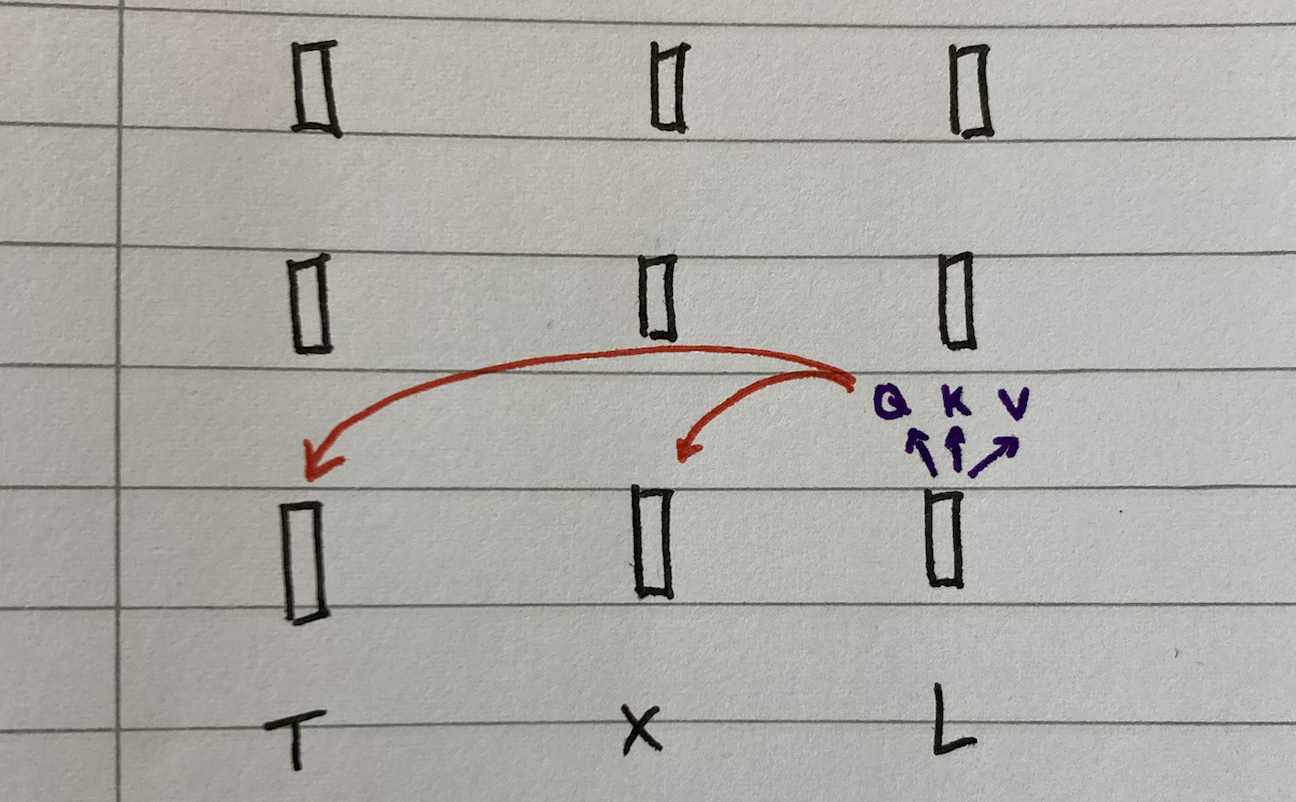 Q K V
T X L